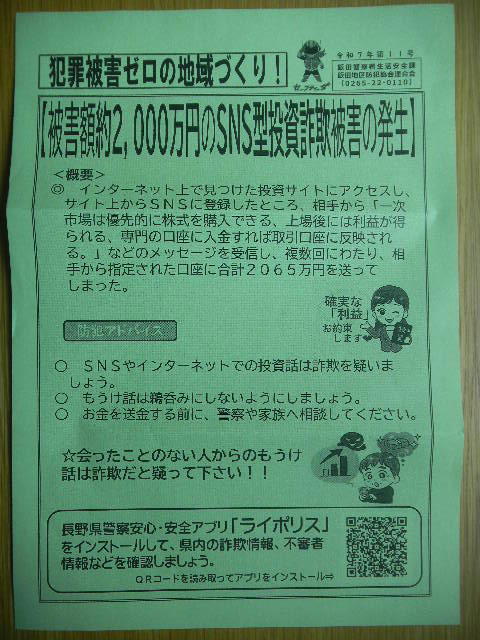 令和7年第11号
犯罪被害ゼロの地域づくり！
飯田警察署生活安全課
飯田地区防犯協会連合会
（0265-22-0110）
【被害額約2，000万円のSNS型投資詐欺被害の発生】
＜概要＞
◎　インターネット上で見つけた投資サイトにアクセスし、
サイト上からＳＮＳに登録したところ、相手から「一次
市場は優先的に株式を購入できる、上場後には利益が得
られる、専門の口座に入金すれば取引口座に反映され
る。」などのメッセージを受信し、複数回にわたり、相
手から指定された口座に合計２０６５万円を送って
しまった。
確実な
「利益」
お約束
します
防犯アドバイス
○　ＳＮＳやインターネットでの投資話は詐欺を疑いま
しょう。
○　もうけ話は鵜呑みにしないようにしましょう。
○　お金を送金する前に、警察や家族へ相談してください。
☆会ったことのない人からのもうけ
話は詐欺だと疑って下さい！！
長野県警察安心・安全アプリ「ライポリス」
をインストールして、県内の詐欺情報、不審者
情報などを確認しましょう。
ＱＲコードを読み取ってアプリをインストール⇒